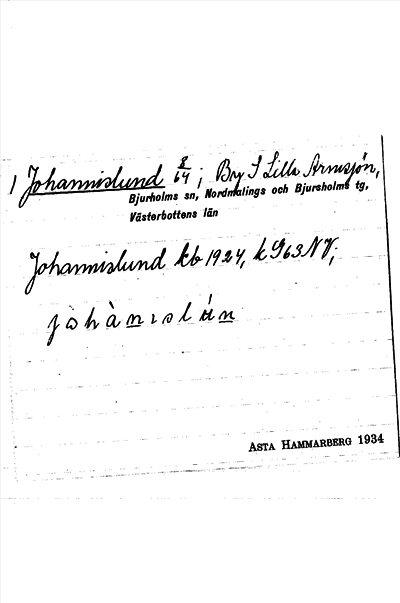 1 Johannislund 8/64; By I Lilla Armsjön,
Bjurholms sn, Nordmalings och Bjurholms tg,
Västerbottens län
Johannislund kb 1924, k 963 NV;
johànıslún
ASTA HAMMARBERG 1934